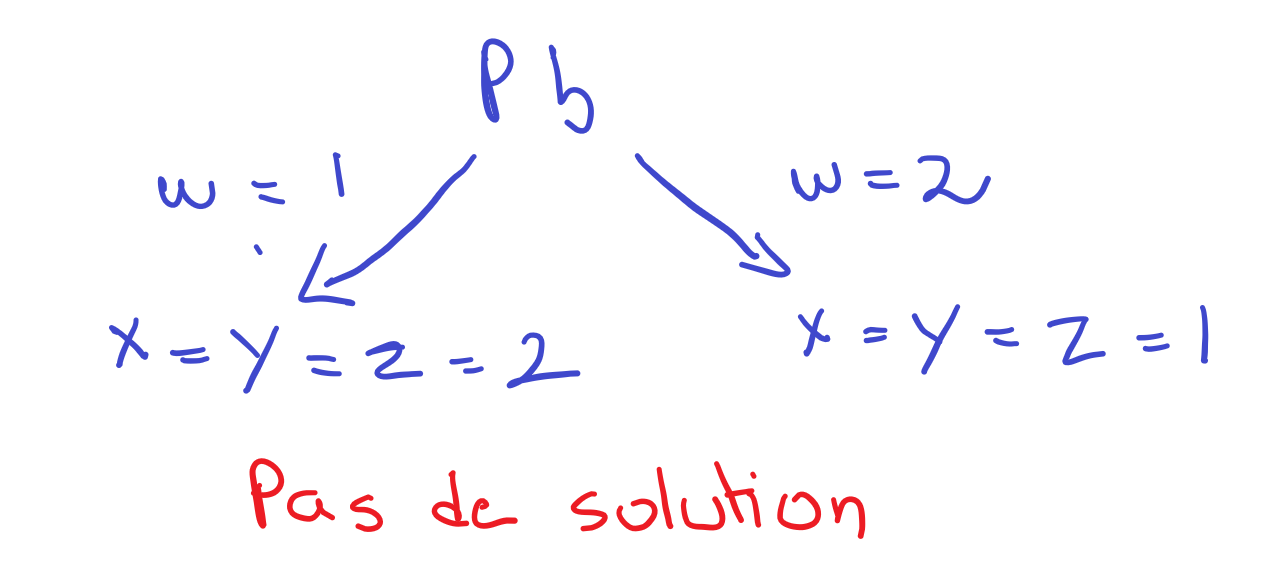 Pb
w = 1
w = 2
x = y = z = 2
x = y = z = 1
Pas de solution